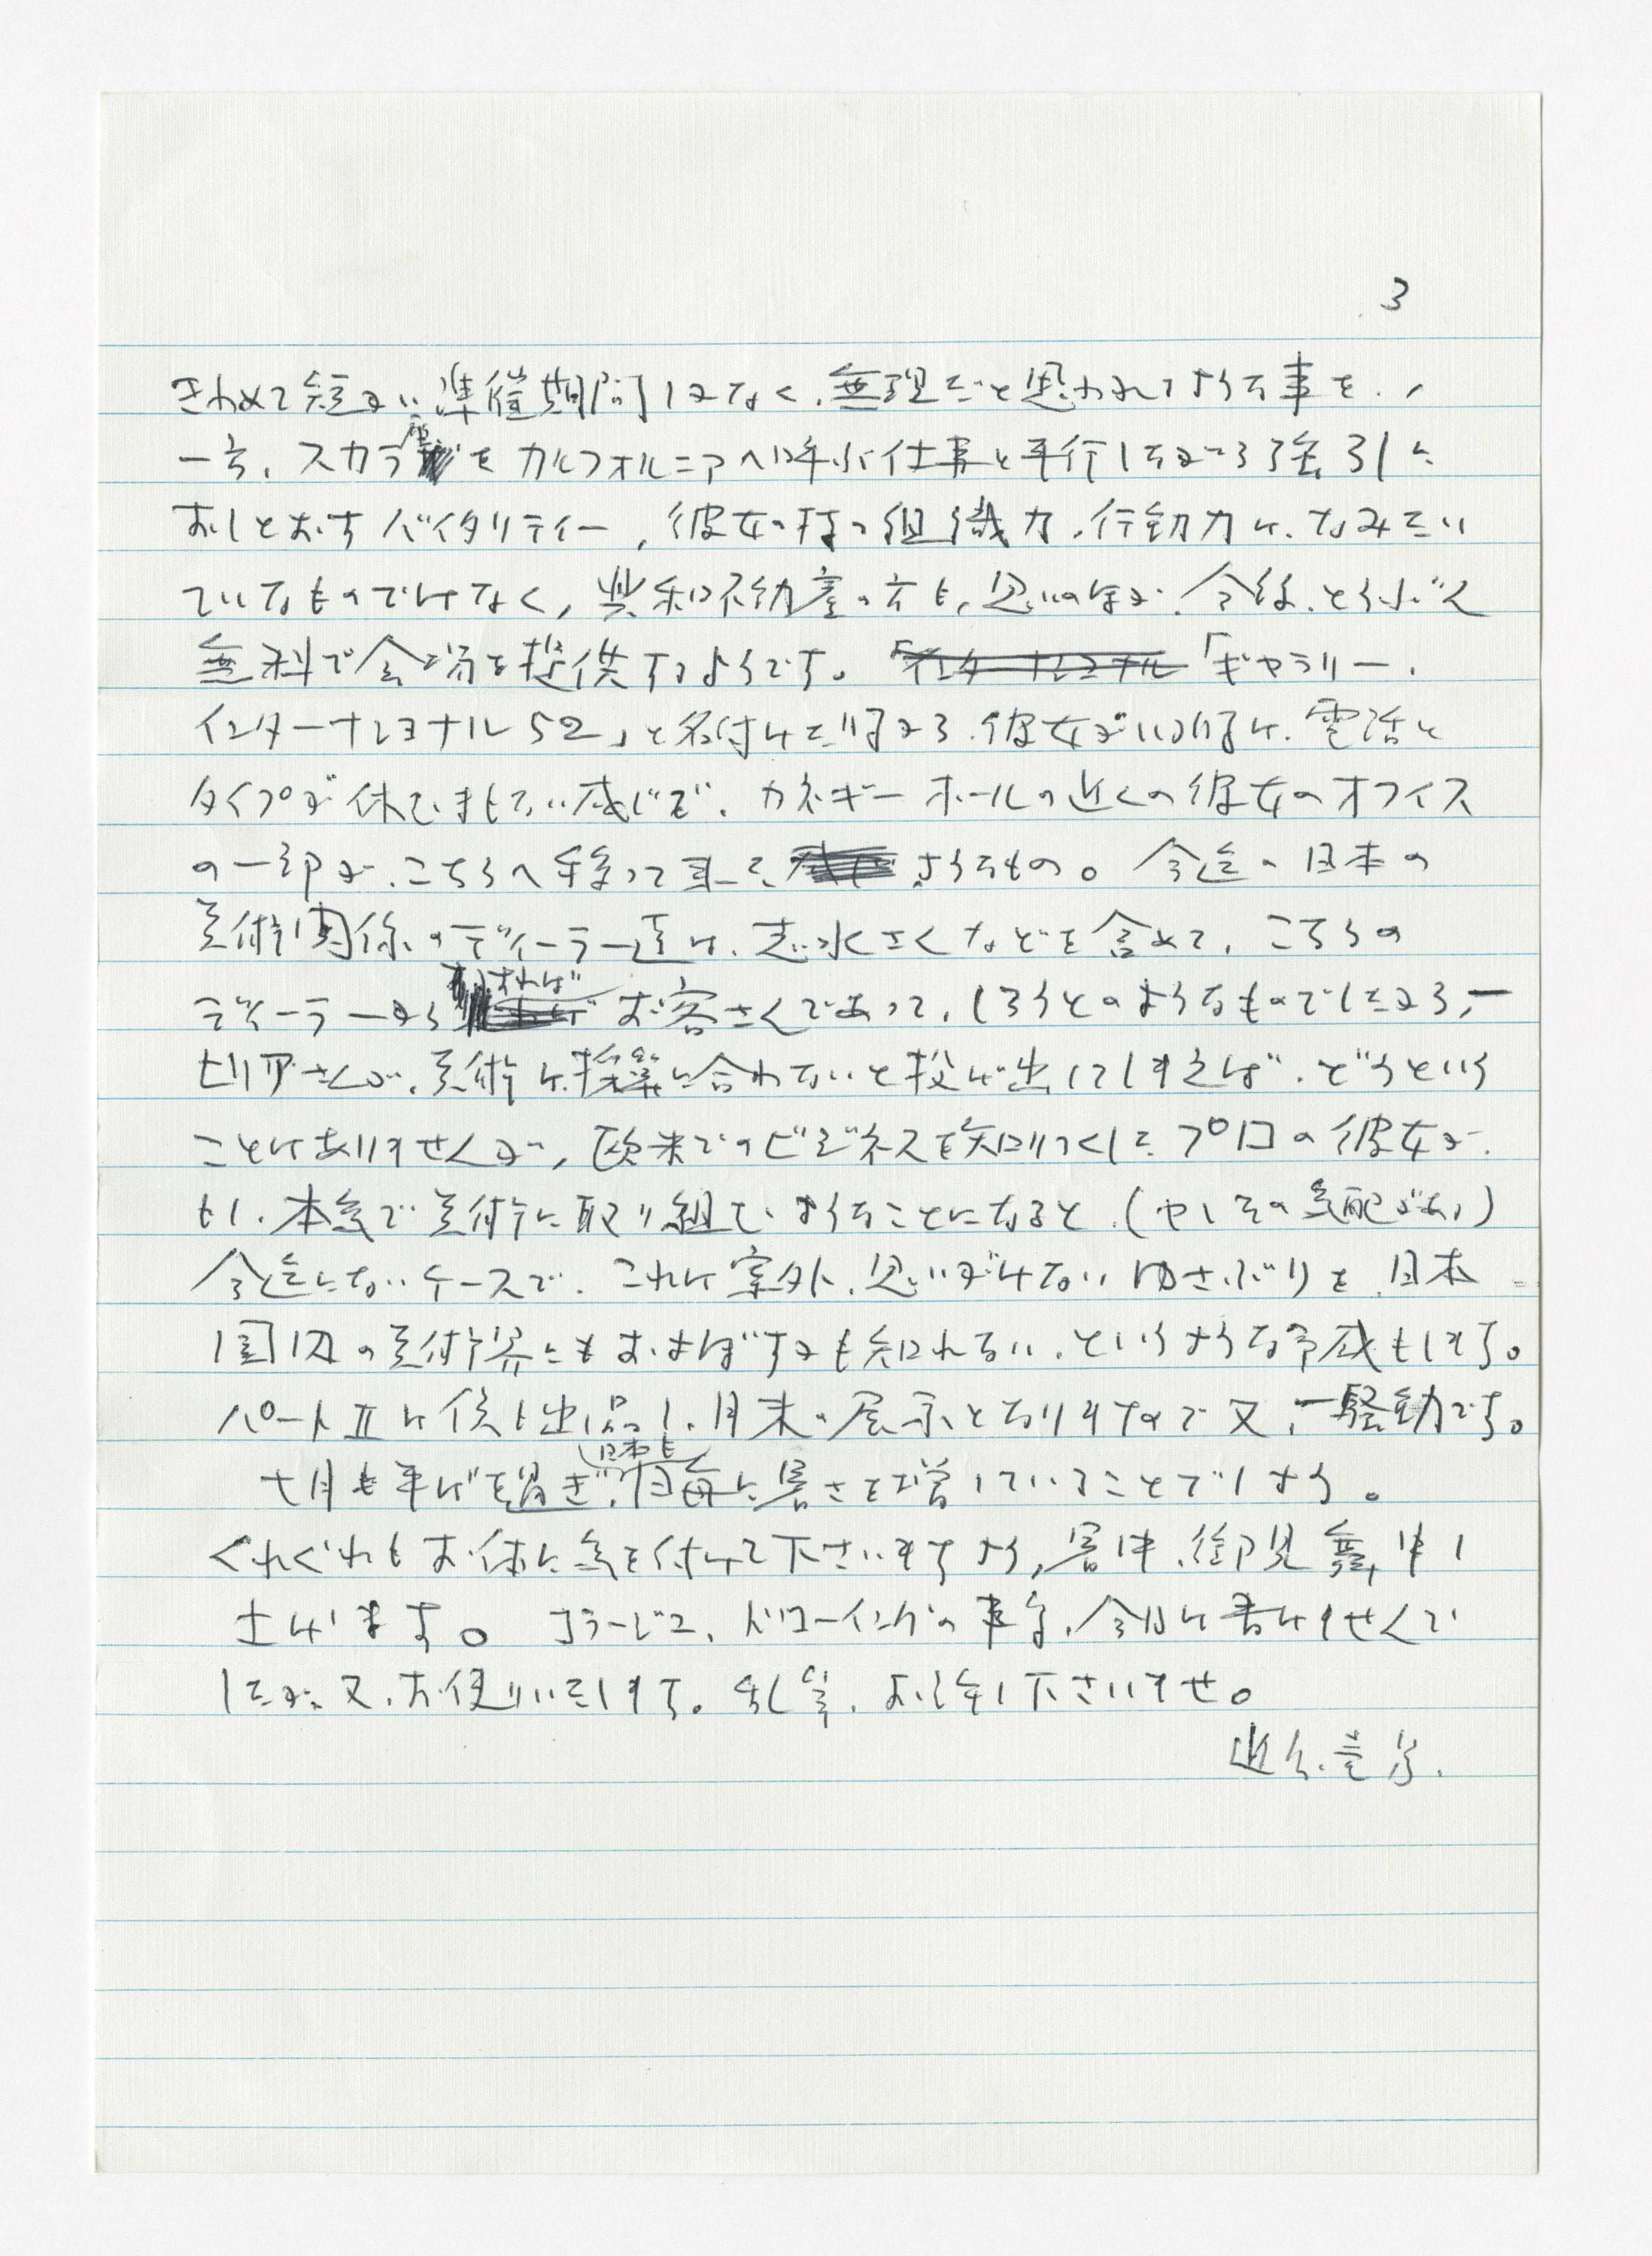 3
きわめて短かい準備期間しかなく、無理だと思われるような事を、
一方、スカラ座をカルフォルニアへ呼ぶ仕事と平行しながら強引に
おしとおすバイタリティー、彼女の持つ組織力、行動力は、なみたい
ていなものではなく、共和不動産の方も、思いのほか、今後、とうぶん
無料で会場を提供するようです。「ギャラリー、
インターナショナル52」と名付けた所から、彼女がいる間は、電話と
タイプが休んでませない感じで、カネギーホールの近くの彼女のオフィス
の一部が、こちらへ移って来たようなもの。今迄の日本の
美術関係のディーラー達は、志水さんなどを含めて、こちらの
ディーラーからすればお客さんであって、しろうとのようなものでしたから、
セリアさんが、美術は採算に合わないと投げ出してしまえば、どうという
ことはありませんが、欧米でのビジネスを知りつくしたプロの彼女が、
もし、本気で美術に取り組むようなことになると、(ややその気配があり)
今迄にないケースで、これは案外、思いがけないゆさぶりを、日本
国内の美術界にもおよぼすかも知れない、というような予感もします。
パートIIは僕も出品し、月末の展示となりますので又、一騒動です。
七月も半ばを過ぎ、日本も日毎に暑さを増していることでしょう。
くれぐれもお体に気を付けて下さいますよう、暑中、御見舞申し
上げます。コラージュ、ドローイングの事等、今日は書けませんで
したが、又、お便りいたします。乱筆、お許し下さいませ。